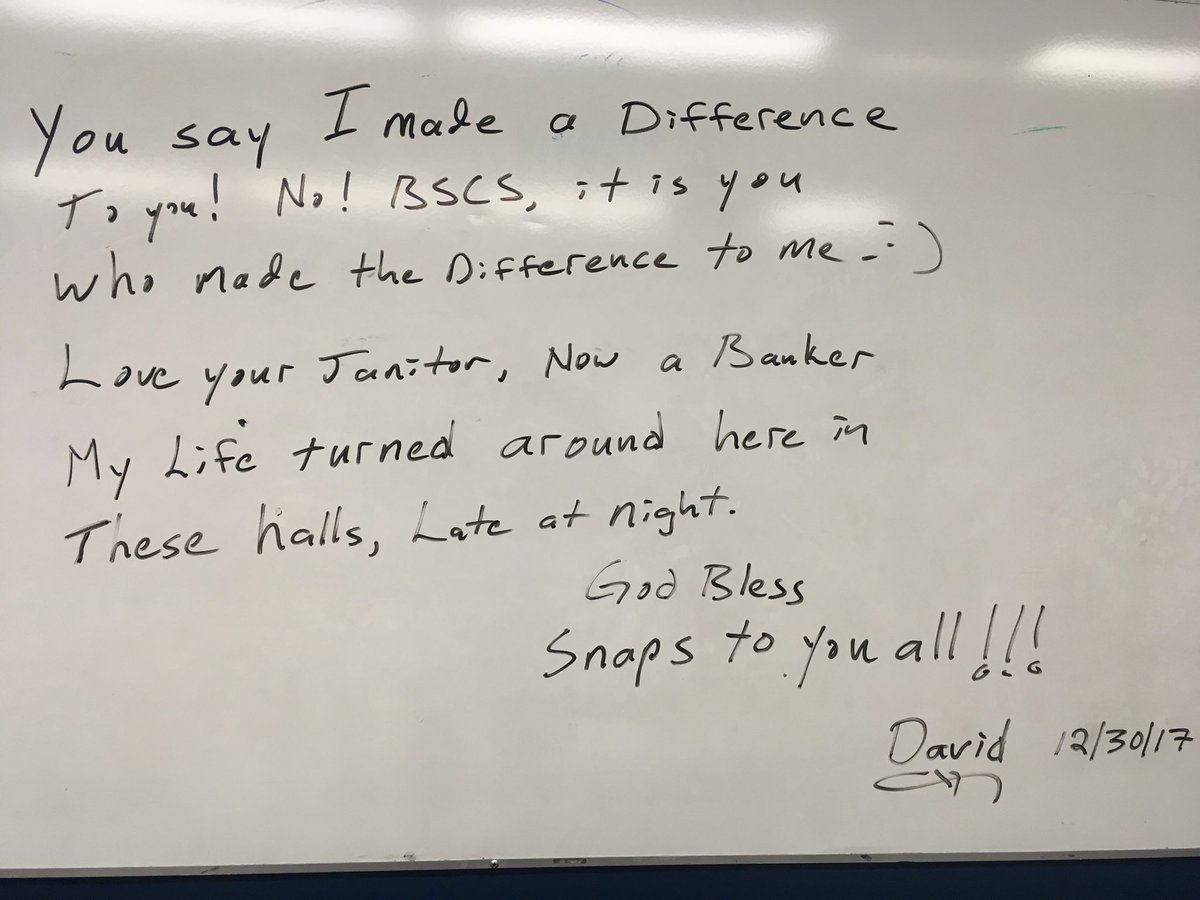 You say I made a Difference
To you! No! BSCS, it is you
who made the Difference to me -:)
Love your Janitor, Now a Banker
My Life turned around here in
These halls, Late at night.
God Bless
Snaps to you all!!!
David 12/30/17